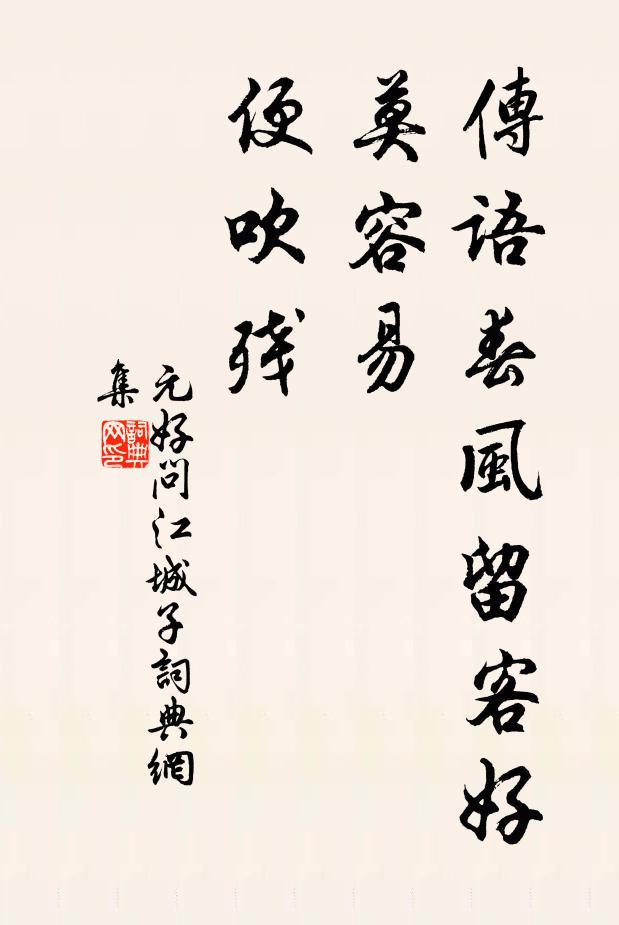 傳語春風留客好
莫容易
便吹残
元好問江城子詞典網
集
詞典
网印